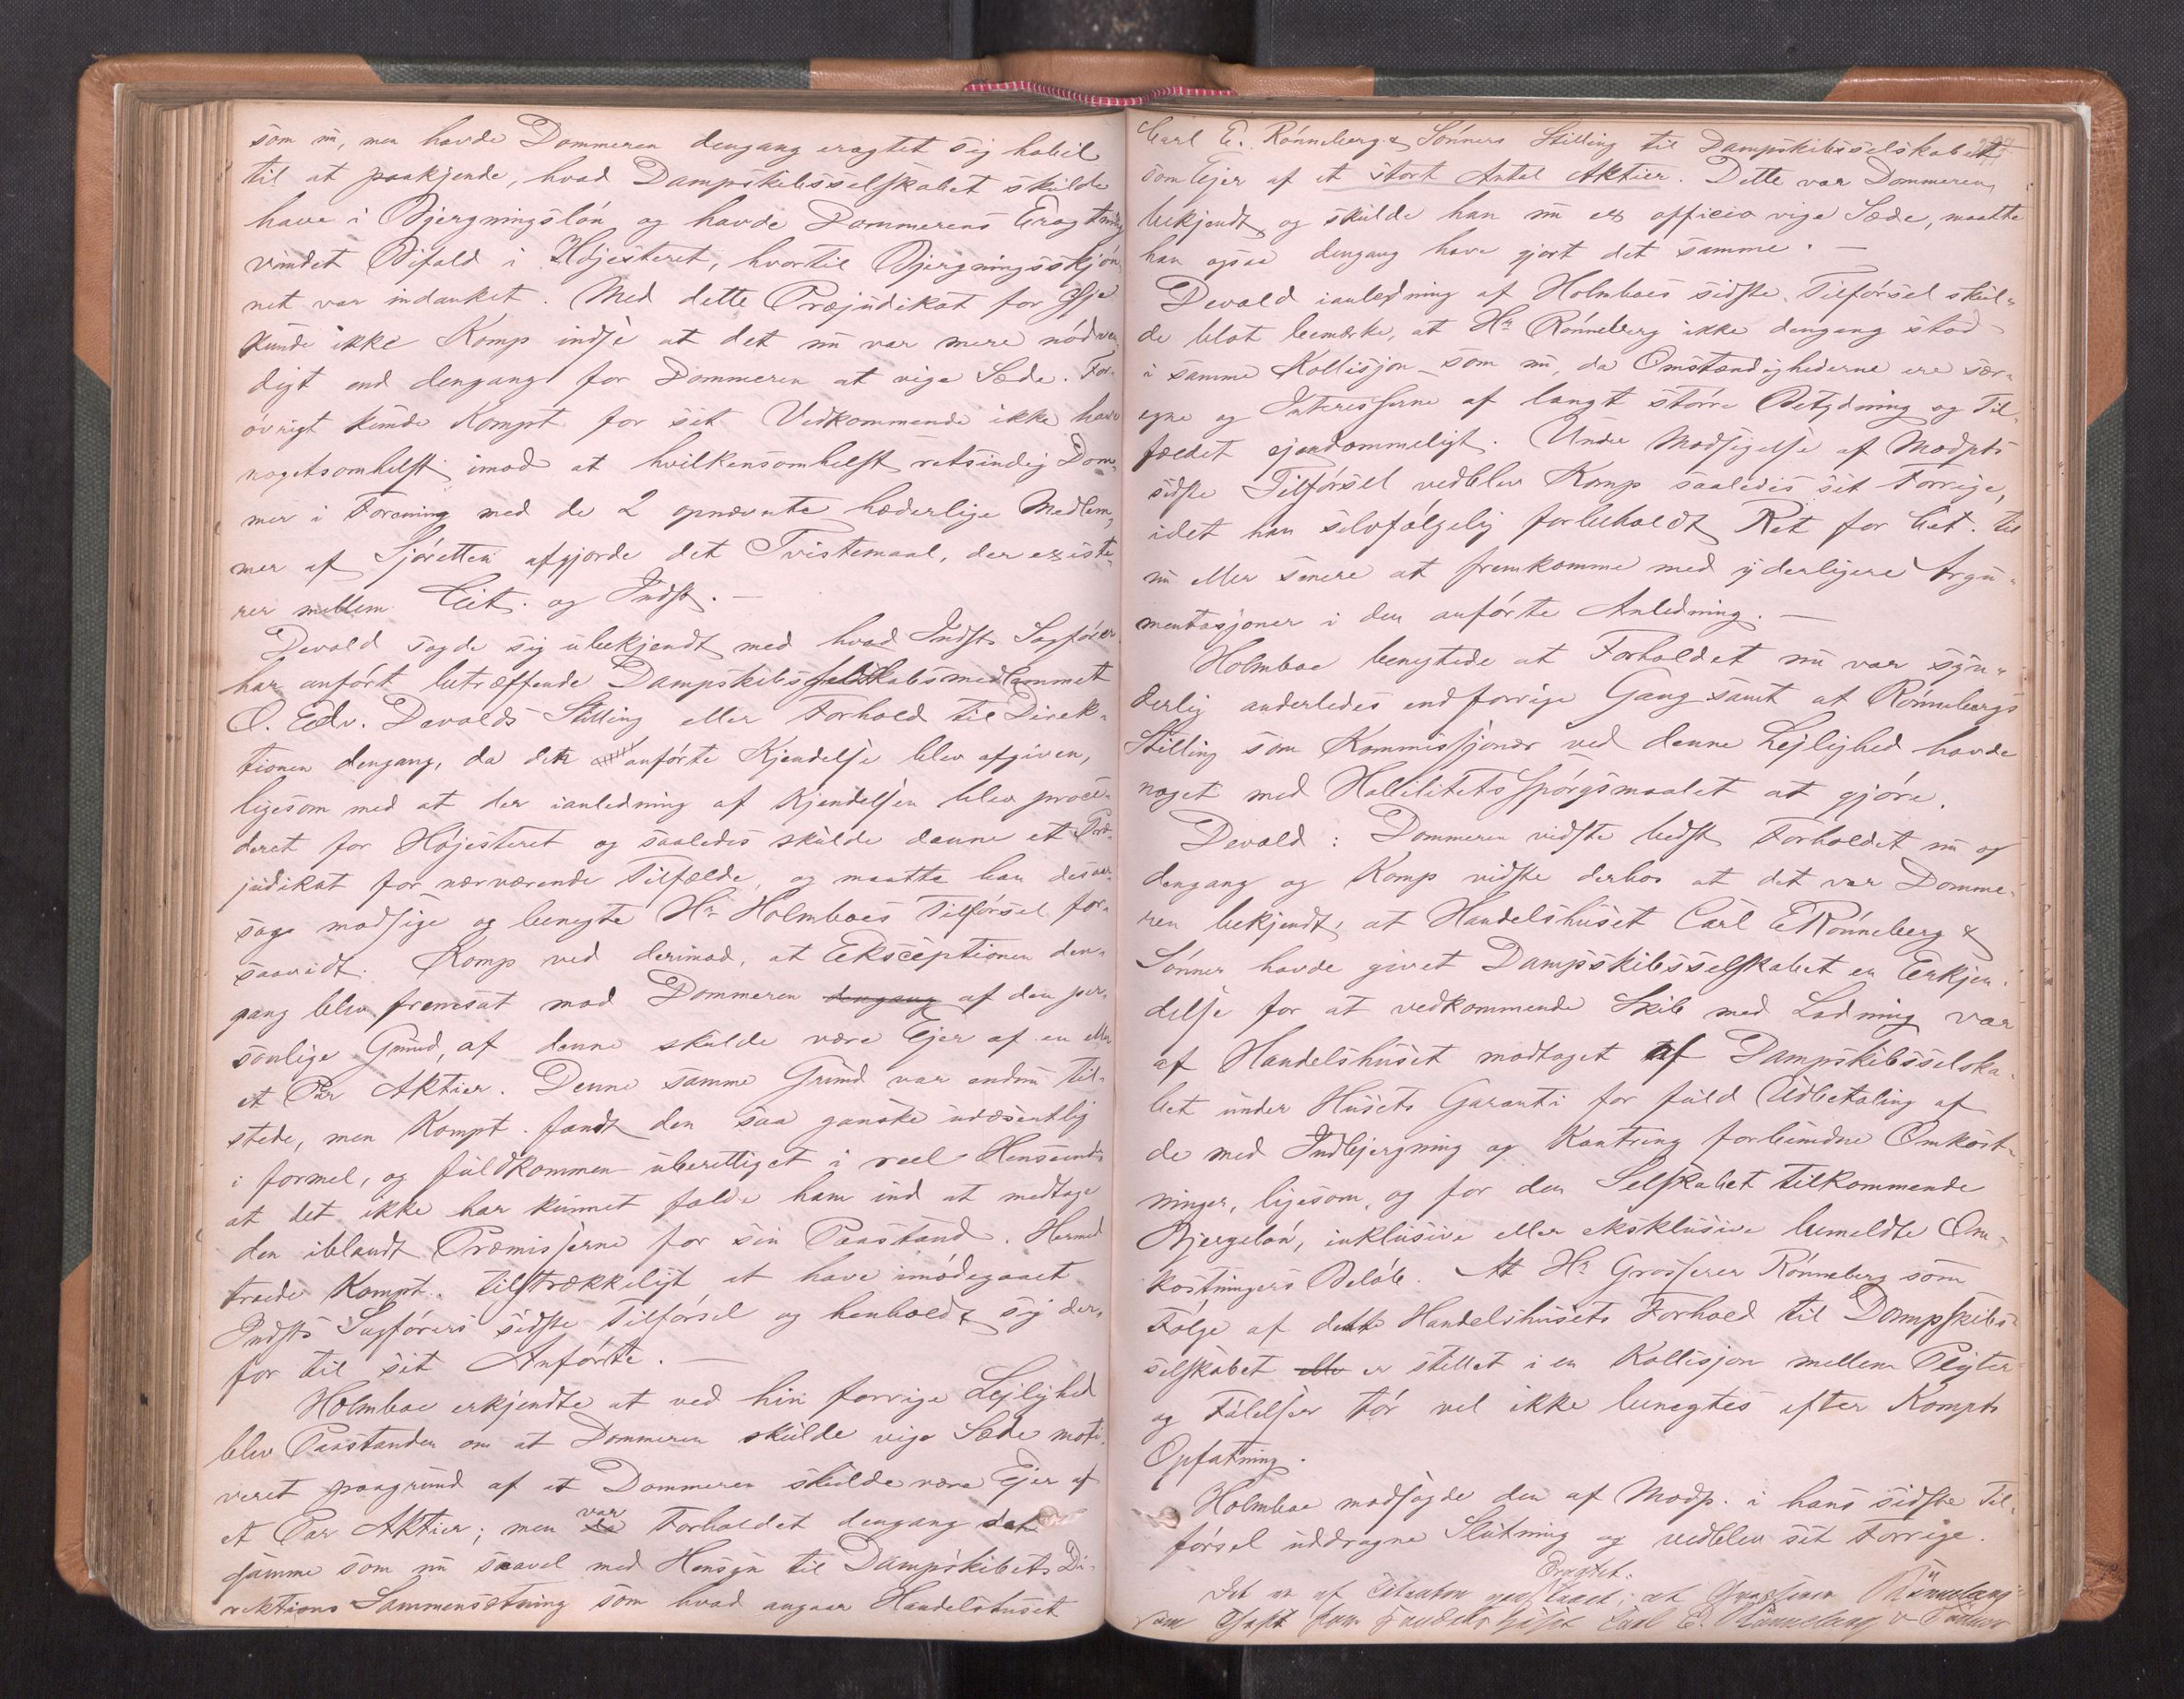 som nu, men havde Dommeren dengang eragtet sig habil
til at paakjende, hvad Dampskibsselskabet skulde
have i Bjergningslön og havde Dommerens Eragtning
vundet Bifald i Höjesteret, hvortil Bjergningsskjön-
net var indanket. Med dette Præjudikat for Øje
kunde ikke Komp indse at det nu var mere nödven-
digt end dengang for Dommeren at vige Sæde. For-
övrigt kunde Kompt for sit Vedkommende ikke have
nogetsomhelst imod at hvilkensomhelst retsindig Dom-
mer i Forening med de 2 opnævnte hæderlige Medlem-
mer af Sjöretten afgjorde det Tvistemaal, der existe-
rer mellem Cit. og Indst. —
Devold sagde sig ubekjendt med hvad Indsts Sagförer
har anfört betræffende Dampskibsselskabsmedlemmet
O. Edv. Devolds Stilling eller Forhold til Direk-
tionen dengang, da den anförte Kjendelse blev afgiven,
ligesom med at der ianledning af Kjendelsen blev proce-
deret for Höjesteret og saaledes skulde danne et Præ-
judikat for nærværende Tilfælde, og maatte han desaar-
sage modsige og benegte Hr Holmboes Tilförsel for-
saavidt. Komp ved derimod, at Eksceptionen den-
gang blev fremsat mod Dommeren dengang af den per-
sonlige Grund, af denne skulde være Ejer af en eller
et Par Aktier. Denne samme Grund var endnu til-
stede, men Kompt. fandt den saa ganske uvæsentlig
i formel, og fuldkommen uberettiget i reel Henseende
at det ikke har kunnet falde ham ind at medtage
den iblandt Præmisserne for sin Paastand. Hermed
troede Kompt. tilstrækkeligt at have imödegaaet
Indsts Sagförers sidste Tilförsel og henholdt sig der-
for til sit Anförte. —
Holmboe erkjendte at ved hin forrige Lejlighed
blev Paastanden om at Dommeren skulde vige Sæde moti-
veret paagrund af at Dommeren skulde være Ejer af
et Par Aktier; men var Forholdet dengang det
samme som nu saavel med Hensyn til Dampskibets Di-
rektions Sammensætning som hvad angaar Handelshuset
Carl E. Rönneberg & Sönners Stilling til Dampskibsselskabet
som Ejer af et stort Antal Aktier. Dette var Dommeren
bekjendt og skulde han nu ex officio vige Sæde, maatte
han ogsaa dengang have gjort det samme. —
Devold ianledning af Holmboes sidste Tilförsel skul-
de blot bemærke, at Hr Rönneberg ikke dengang stod
i samme Kollisjon som nu, da Omstændighederne ere sær-
egne og Interesserne af langt större Betydning og Til-
fældet ejendommeligt. Under Modsigelse af Modpts
sidste Tilförsel vedblev Komp saaledes sit Forrige,
idet han selvfölgelig forbeholdt Ret for Cit. til
nu eller senere at fremkomme med yderligere Argu-
mentasjoner i den anförte Anledning. —
Holmboe benegtede at Forholdet nu var syn-
derlig anderledes end forrige Gang samt at Rönnebergs
Stilling som Kommissjonær ved denne Lejlighed havde
noget med Habilitetsspörgsmaalet at gjöre.
Devold: Dommeren vidste bedst Forholdet nu og
dengang og Komp vidste derhos at det var Domme-
ren bekjendt, at Handelshuset Carl E Rönneberg &
Sönner havde givet Dampskibsselskabet en Erkjen-
delse for at vedkommende Skib med Ladning var
af Handelshuset modtaget af Dampskibsselska-
bet under Husets Garanti for fuld Udbetaling af
de med Indbjergning og Kantring forbundne Omkost-
ninger, ligesom og for den Selskabet tilkommende
Bjergelön, inklusive eller eksklusive bemeldte Om-
kostningers Belöb. At Hr Grosserer Rönneberg som
Fölge af dette Handelshusets Forhold til Dampskibs-
selskabet er stillet i en Kollisjon mellem Pligter
og Fölelser tör vel ikke benegtes efter Kompts
Opfatning.
Holmboe modsagde den af Modp. i hans sidste Til-
försel uddragne Slutning og vedblev sit Forrige.
Eragtet.
Det er af Citanten paastaaet, at Grosserer Rönneberg
som Chef for Handelshuset Carl E. Rönneberg & Sönner